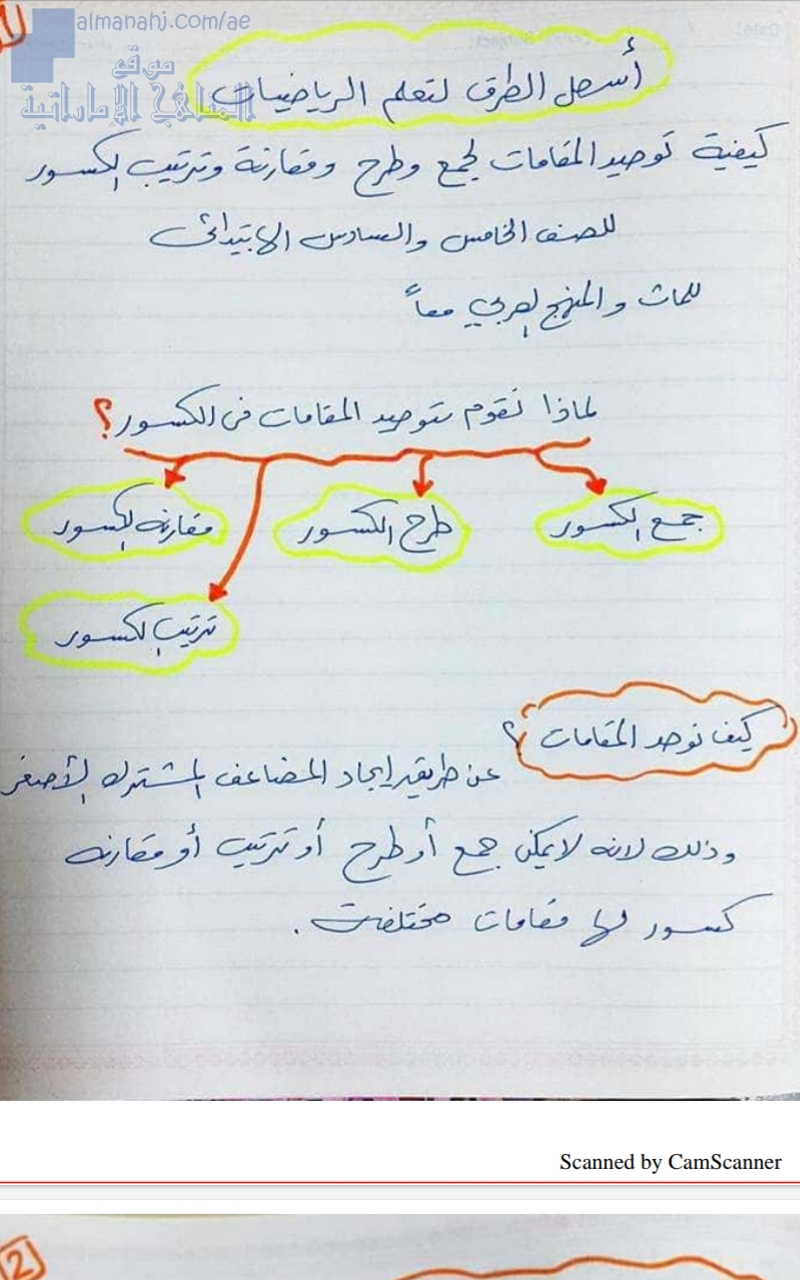 1
almanahj.com/ae
موقع
المناهج الإماراتية
أسهل الطرق لتعلم الرياضيات
كيفية توحيد المقامات لجمع وطرح ومقارنة وترتيب الكسور
للصف الخامس والسادس الابتدائى
للماث والمنهج العربي معاً
لماذا نقوم بتوحيد المقامات فى الكسور؟
جمع الكسور
طرح الكسور
مقارنه الكسور
ترتيب الكسور
كيف نوحد المقامات؟
عن طريق ايجاد المضاعف المشترك الأصغر
وذلك لانه لا يمكن جمع أو طرح أو ترتيب أو مقارنه
كسور لها مقامات مختلفة.
Scanned by CamScanner
2